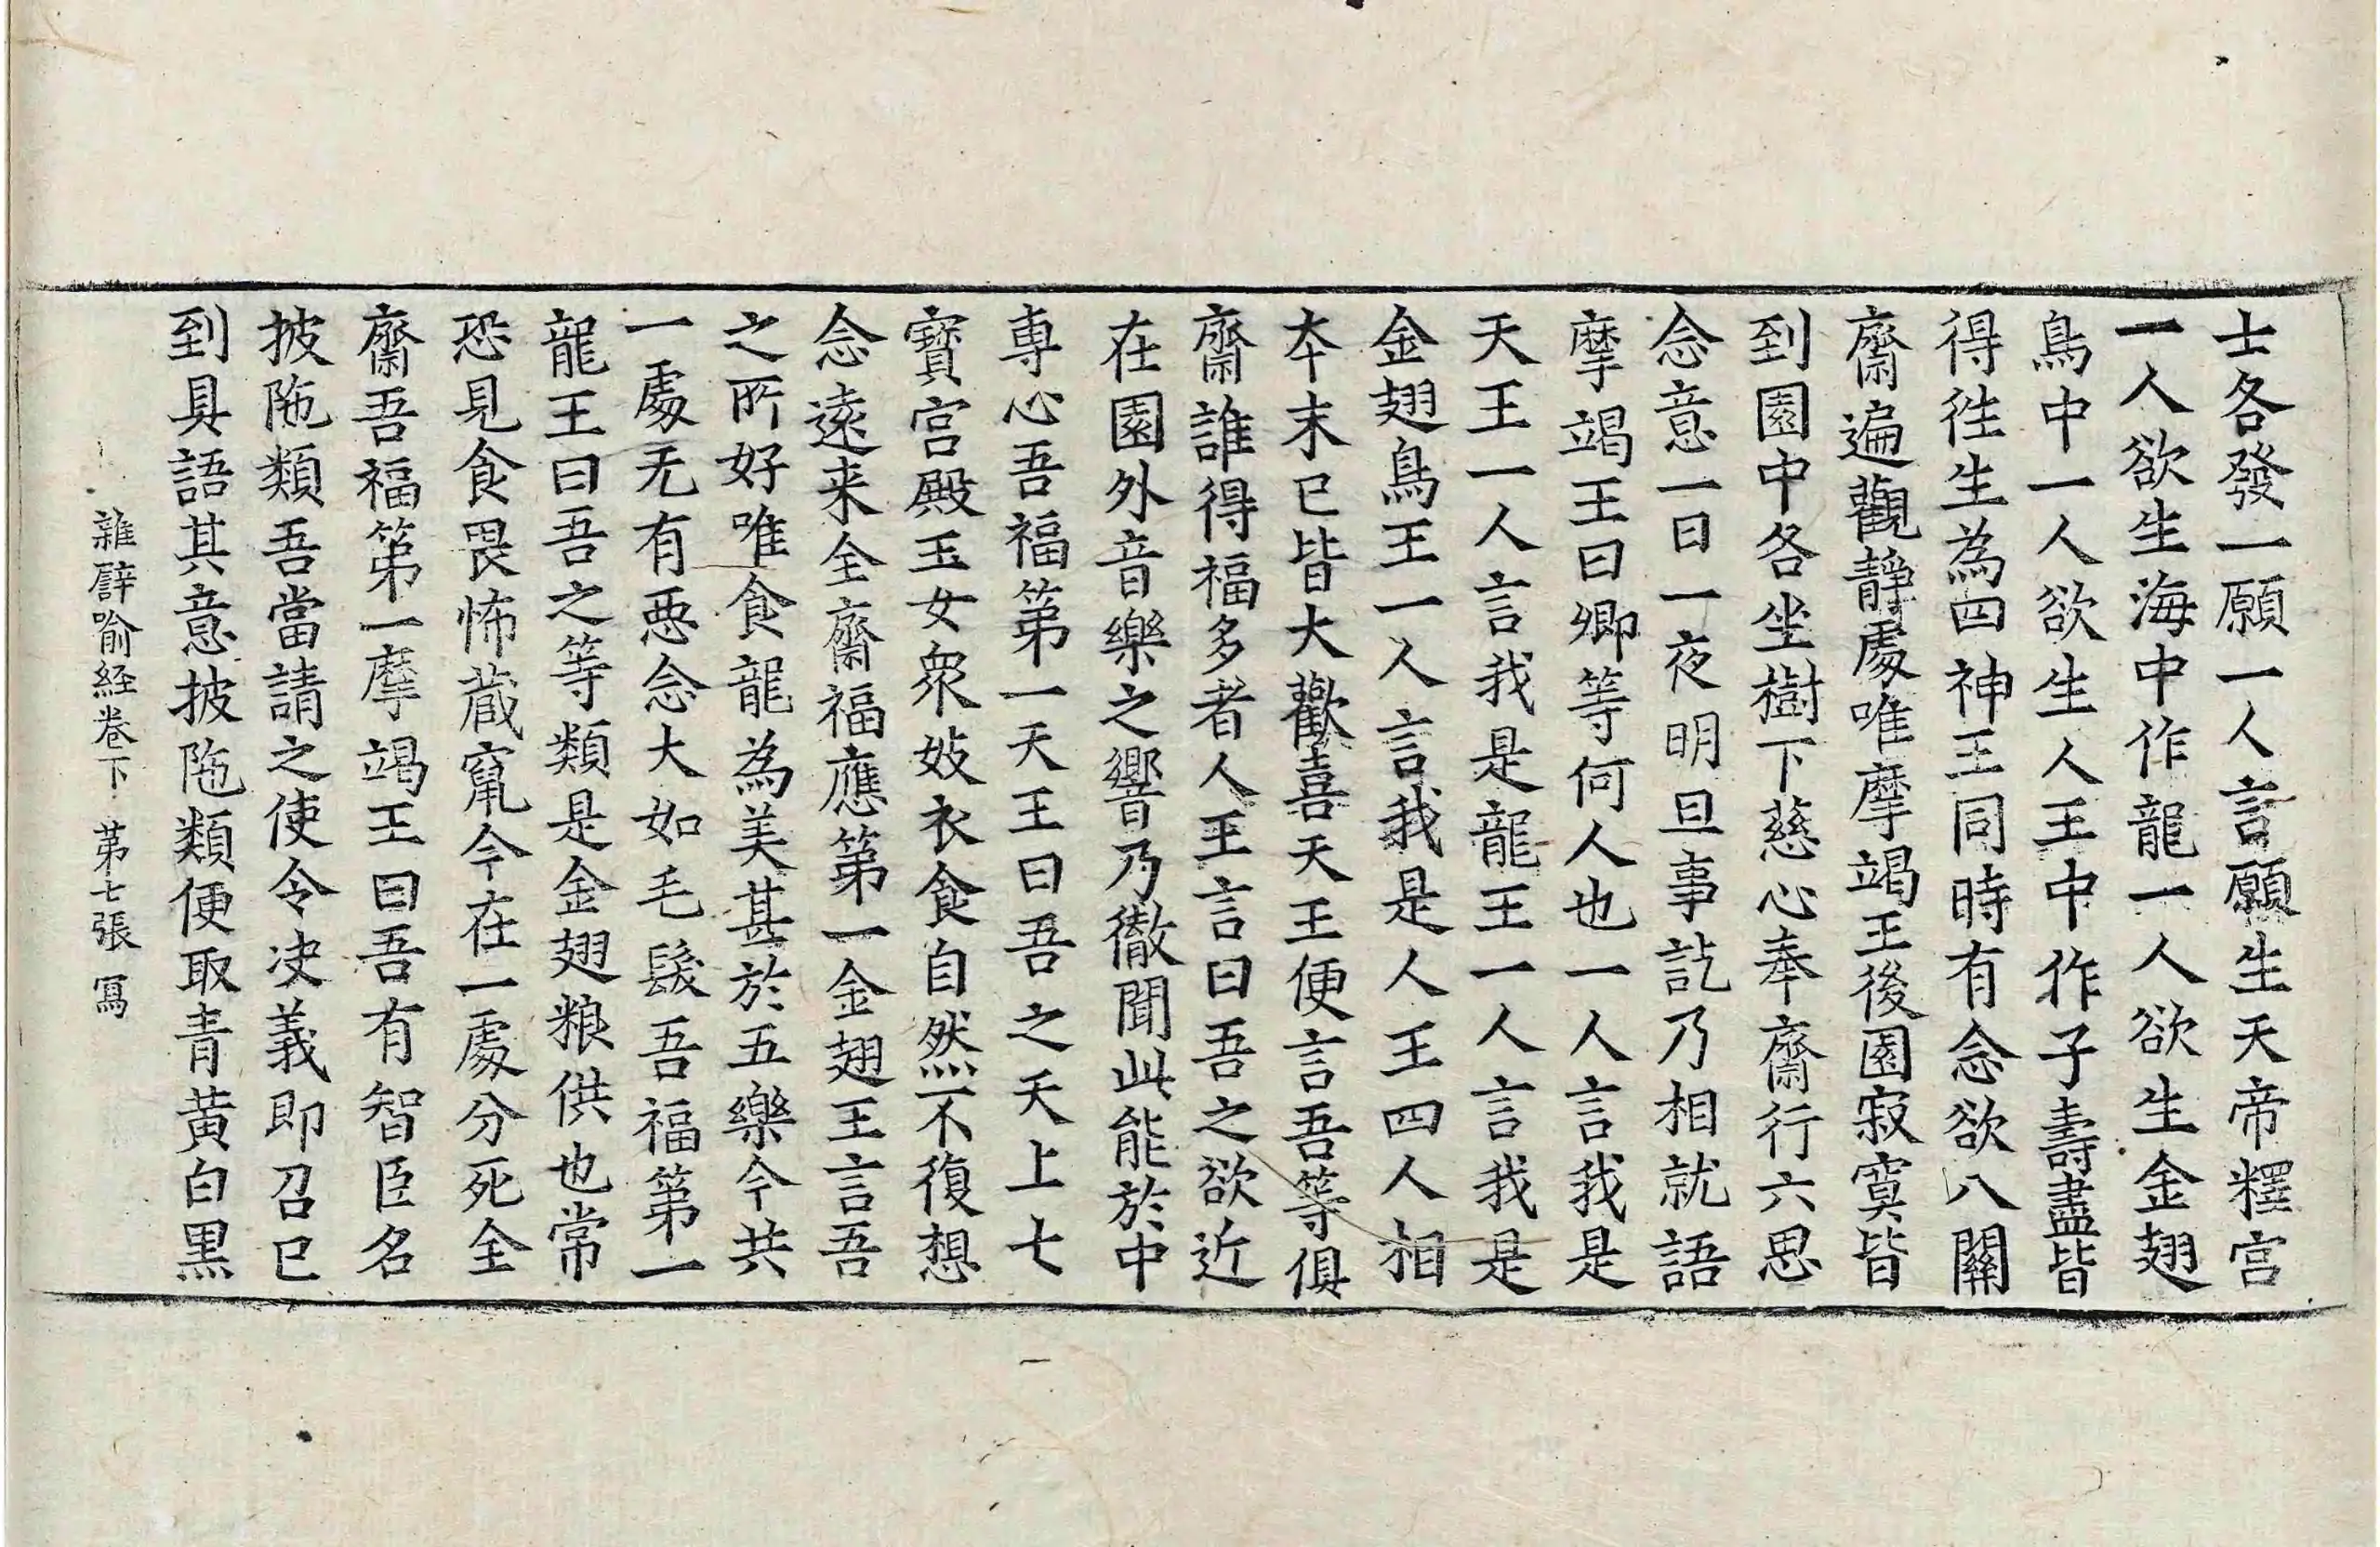 士各發一願一人言願生天帝釋宫
一人欲生海中作龍一人欲生金翅
鳥中一人欲生人王中作子壽盡皆
得徃生為四神王同時有念欲八關
齋遍觀靜處唯摩竭王後園寂寞皆
到園中各坐樹下慈心奉齋行六思
念意一日一夜明旦事訖乃相就語
摩竭王曰卿等何人也一人言我是
天王一人言我是龍王一人言我是
金翅鳥王一人言我是人王四人相
夲末已皆大歡喜天王便言吾等俱
齋誰得福多者人王言曰吾之欲近
在園外音樂之響乃徹聞此能於中
專心吾福第一天王曰吾之天上七
寶宫殿玉女衆妓衣食自然不復想
念遠来全齋福應第一金翅王言吾
之所好唯食龍為美甚於五樂今共
一處无有惡念大如毛髮吾福第一
龍王曰吾之等類是金翅粮供也常
恐見食畏怖蔵竄今在一處分死全
齋吾福第一摩竭王曰吾有智臣名
披陁類吾當請之使令决義即召已
到具語其意披陁類便取青黃白黒
雜譬喻経卷下 第七張 寫